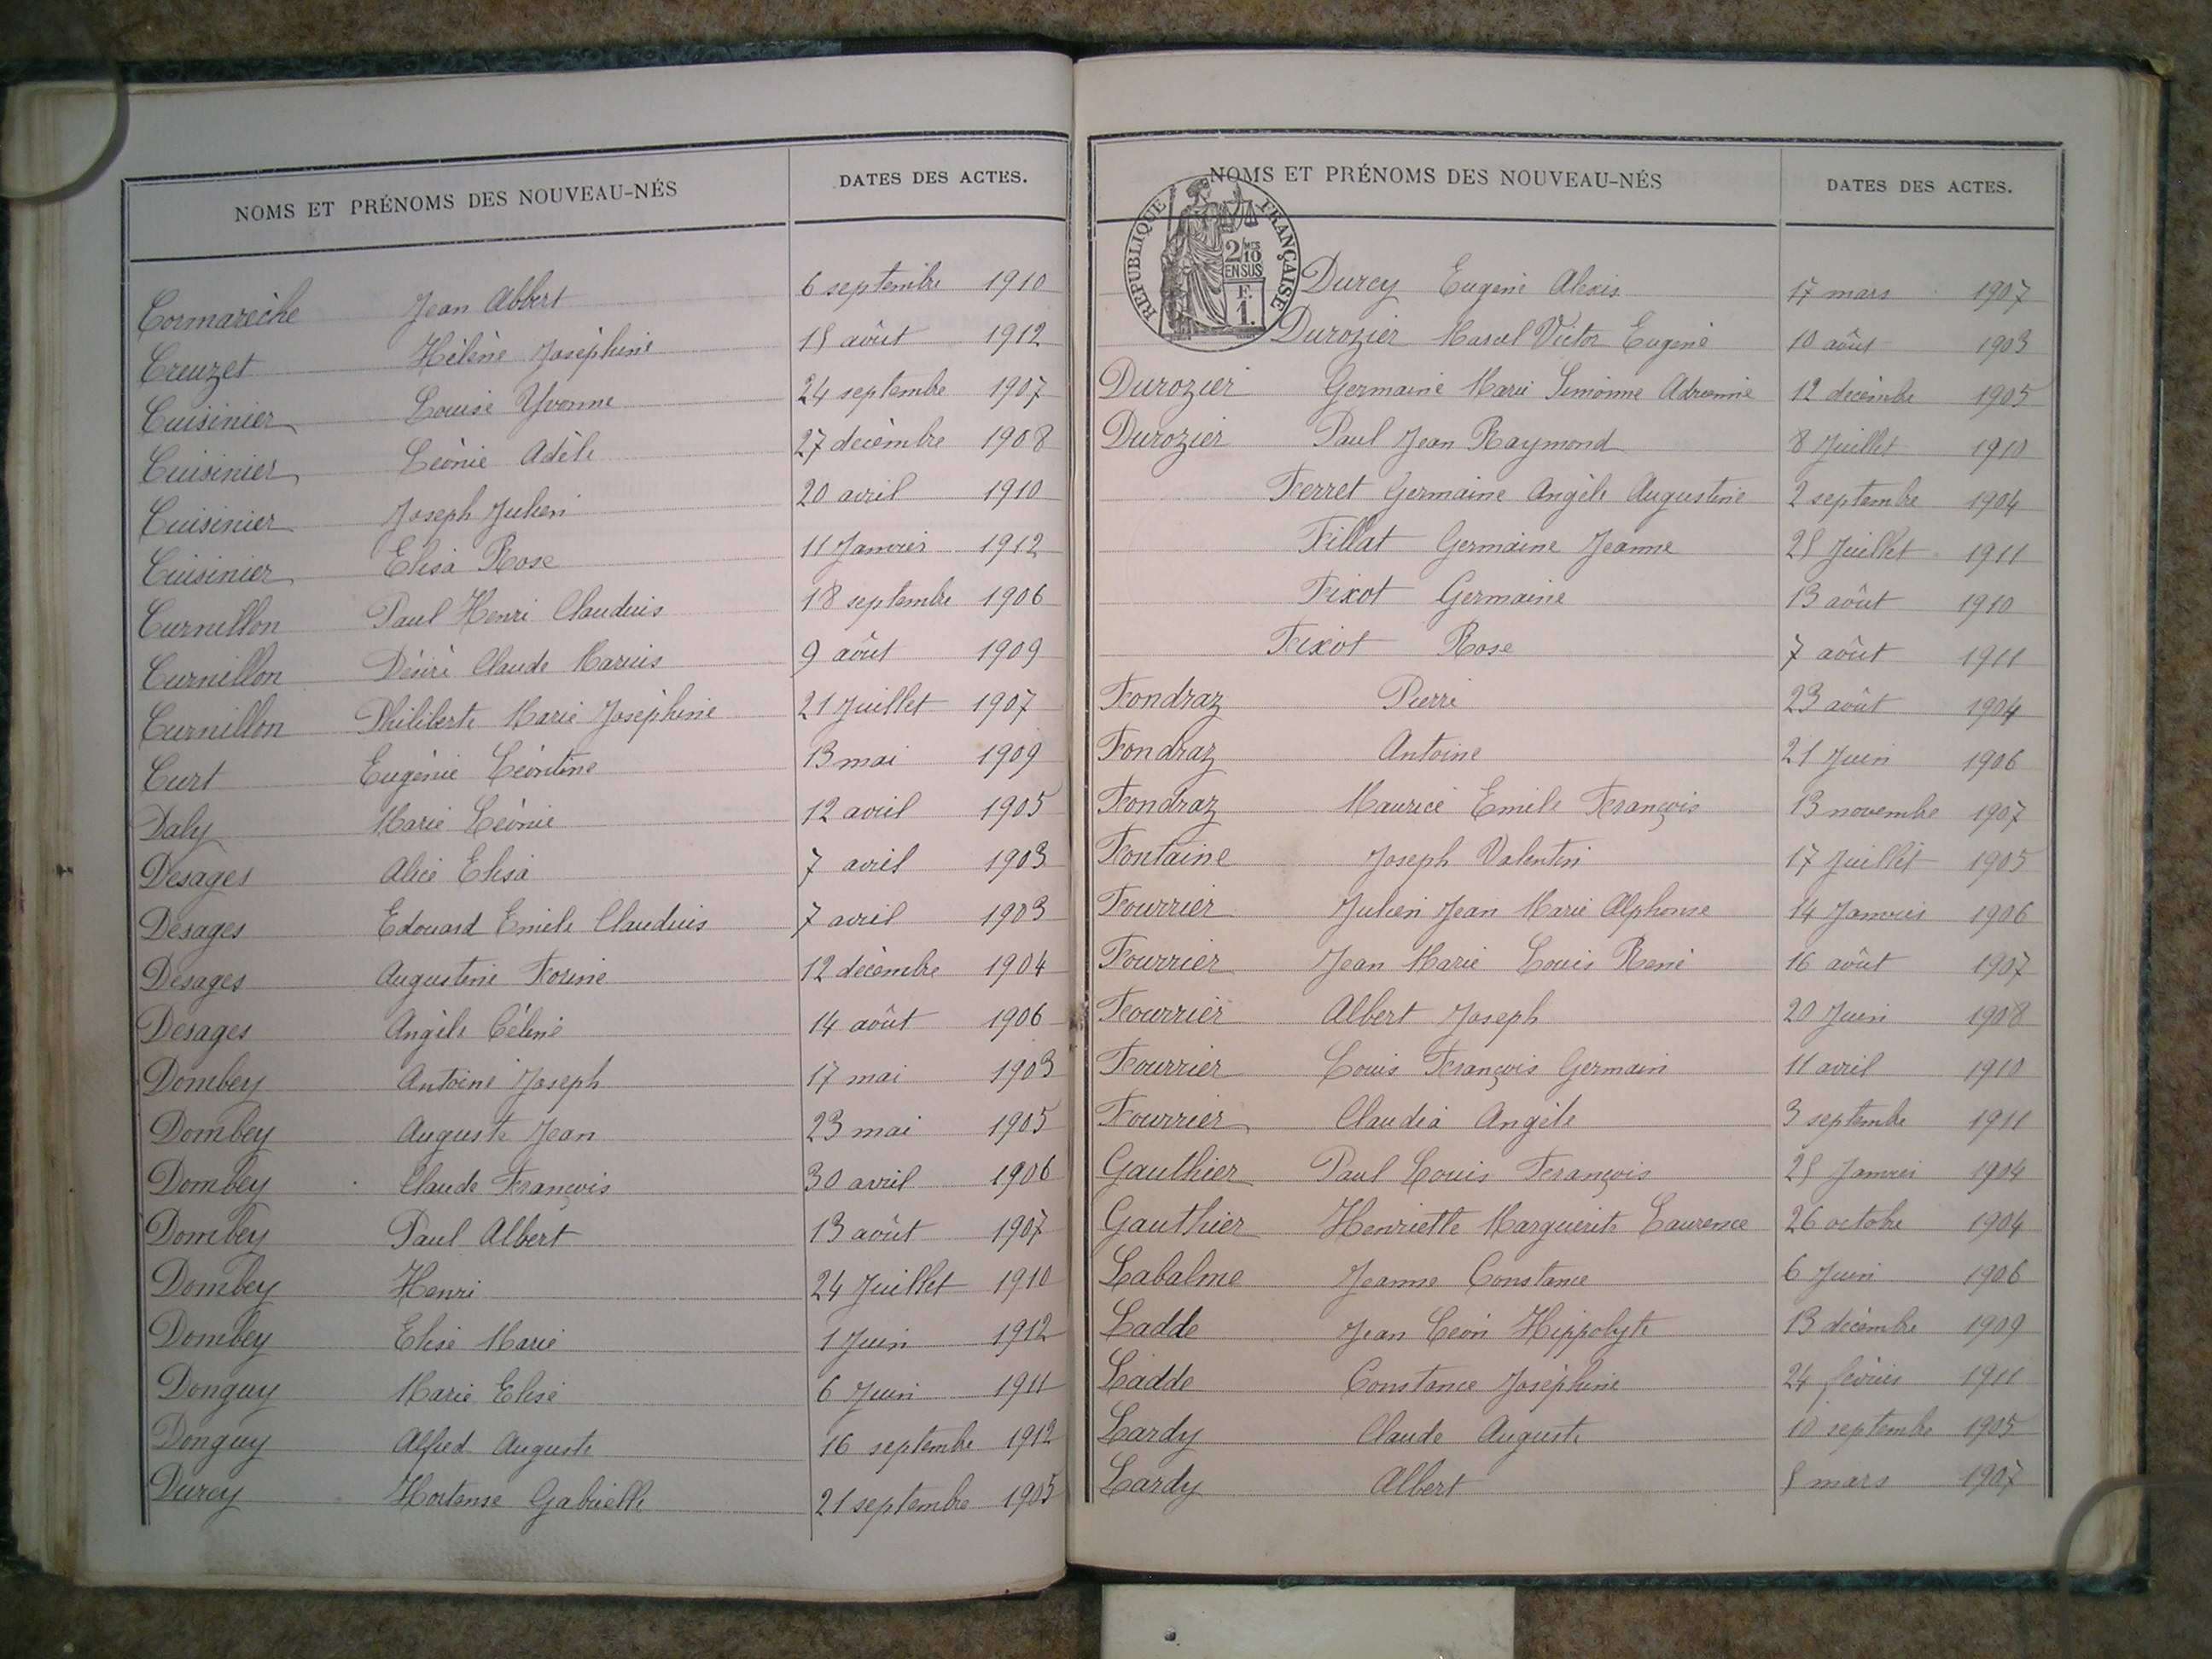 NOMS ET PRÉNOMS DES NOUVEAU-NÉS DATES DES ACTES.
Cormarèche Jean Albert 6 septembre 1910
Creuzet Hélène Joséphine 15 août 1912
Cuisinier Louise Yvonne 24 septembre 1907
Cuisinier Léonie Adèle 27 décembre 1908
Cuisinier Joseph Julien 20 avril 1910
Cuisinier Elisa Rose 11 Janvier 1912
Curnillon Paul Henri Claudius 18 septembre 1906
Curnillon Désiré Claude Marius 9 août 1909
Curnillon Philiberte Marie Joséphine 21 Juillet 1907
Curt Eugénie Léontine 13 mai 1909
Daly Marie Léonie 12 avril 1905
Desages Alice Elisa 7 avril 1903
Desages Edouard Emile Claudius 7 avril 1903
Desages Augustine 12 décembre 1904
Desages Angèle Céline 14 août 1906
Dombey Antoine Joseph 17 mai 1903
Dombey Auguste Jean 23 mai 1905
Dombey Claude François 30 avril 1906
Dombey Paul Albert 13 août 1907
Dombey Henri 24 Juillet 1910
Dombey Elise Marie 1 Juin 1912
Donguy Marie Elise 6 Juin 1911
Donguy Alfred Auguste 16 septembre 1912
Durcy Hortense Gabrielle 21 septembre 1905
NOMS ET PRÉNOMS DES NOUVEAU-NÉS DATES DES ACTES.
RÉPUBLIQUE FRANÇAISE
2/10 MES
EN SUS
F.
1.
Durcy Eugène Alexis 17 mars 1907
Durozier Marcel Victor Eugène 10 août 1903
Durozier Germaine Marie Simonne Adrienne 12 décembre 1905
Durozier Paul Jean Raymond 8 Juillet 1910
Ferret Germaine Angèle Augustine 2 septembre 1904
Fillat Germaine Jeanne 25 Juillet 1911
Fixot Germaine 13 août 1910
Fixot Rose 7 août 1911
Fondraz Pierre 23 août 1904
Fondraz Antoine 21 Juin 1906
Fondraz Maurice Emile François 13 novembre 1907
Fontaine Joseph Valentin 17 Juillet 1905
Fourrier Julien Jean Marie Alphonse 14 Janvier 1906
Fourrier Jean Marie Louis René 16 août 1907
Fourrier Albert Joseph 20 Juin 1908
Fourrier Louis François Germain 11 avril 1910
Fourrier Claudia Angèle 3 septembre 1911
Gauthier Paul Louis François 25 Janvier 1904
Gauthier Henriette Marguerite Laurence 26 octobre 1904
Labalme Jeanne Constance 6 Juin 1906
Ladde Jean Léon Hippolyte 13 décembre 1909
Ladde Constance Joséphine 24 février 1911
Lardy Claude Auguste 10 septembre 1905
Lardy Albert 5 mars 1907